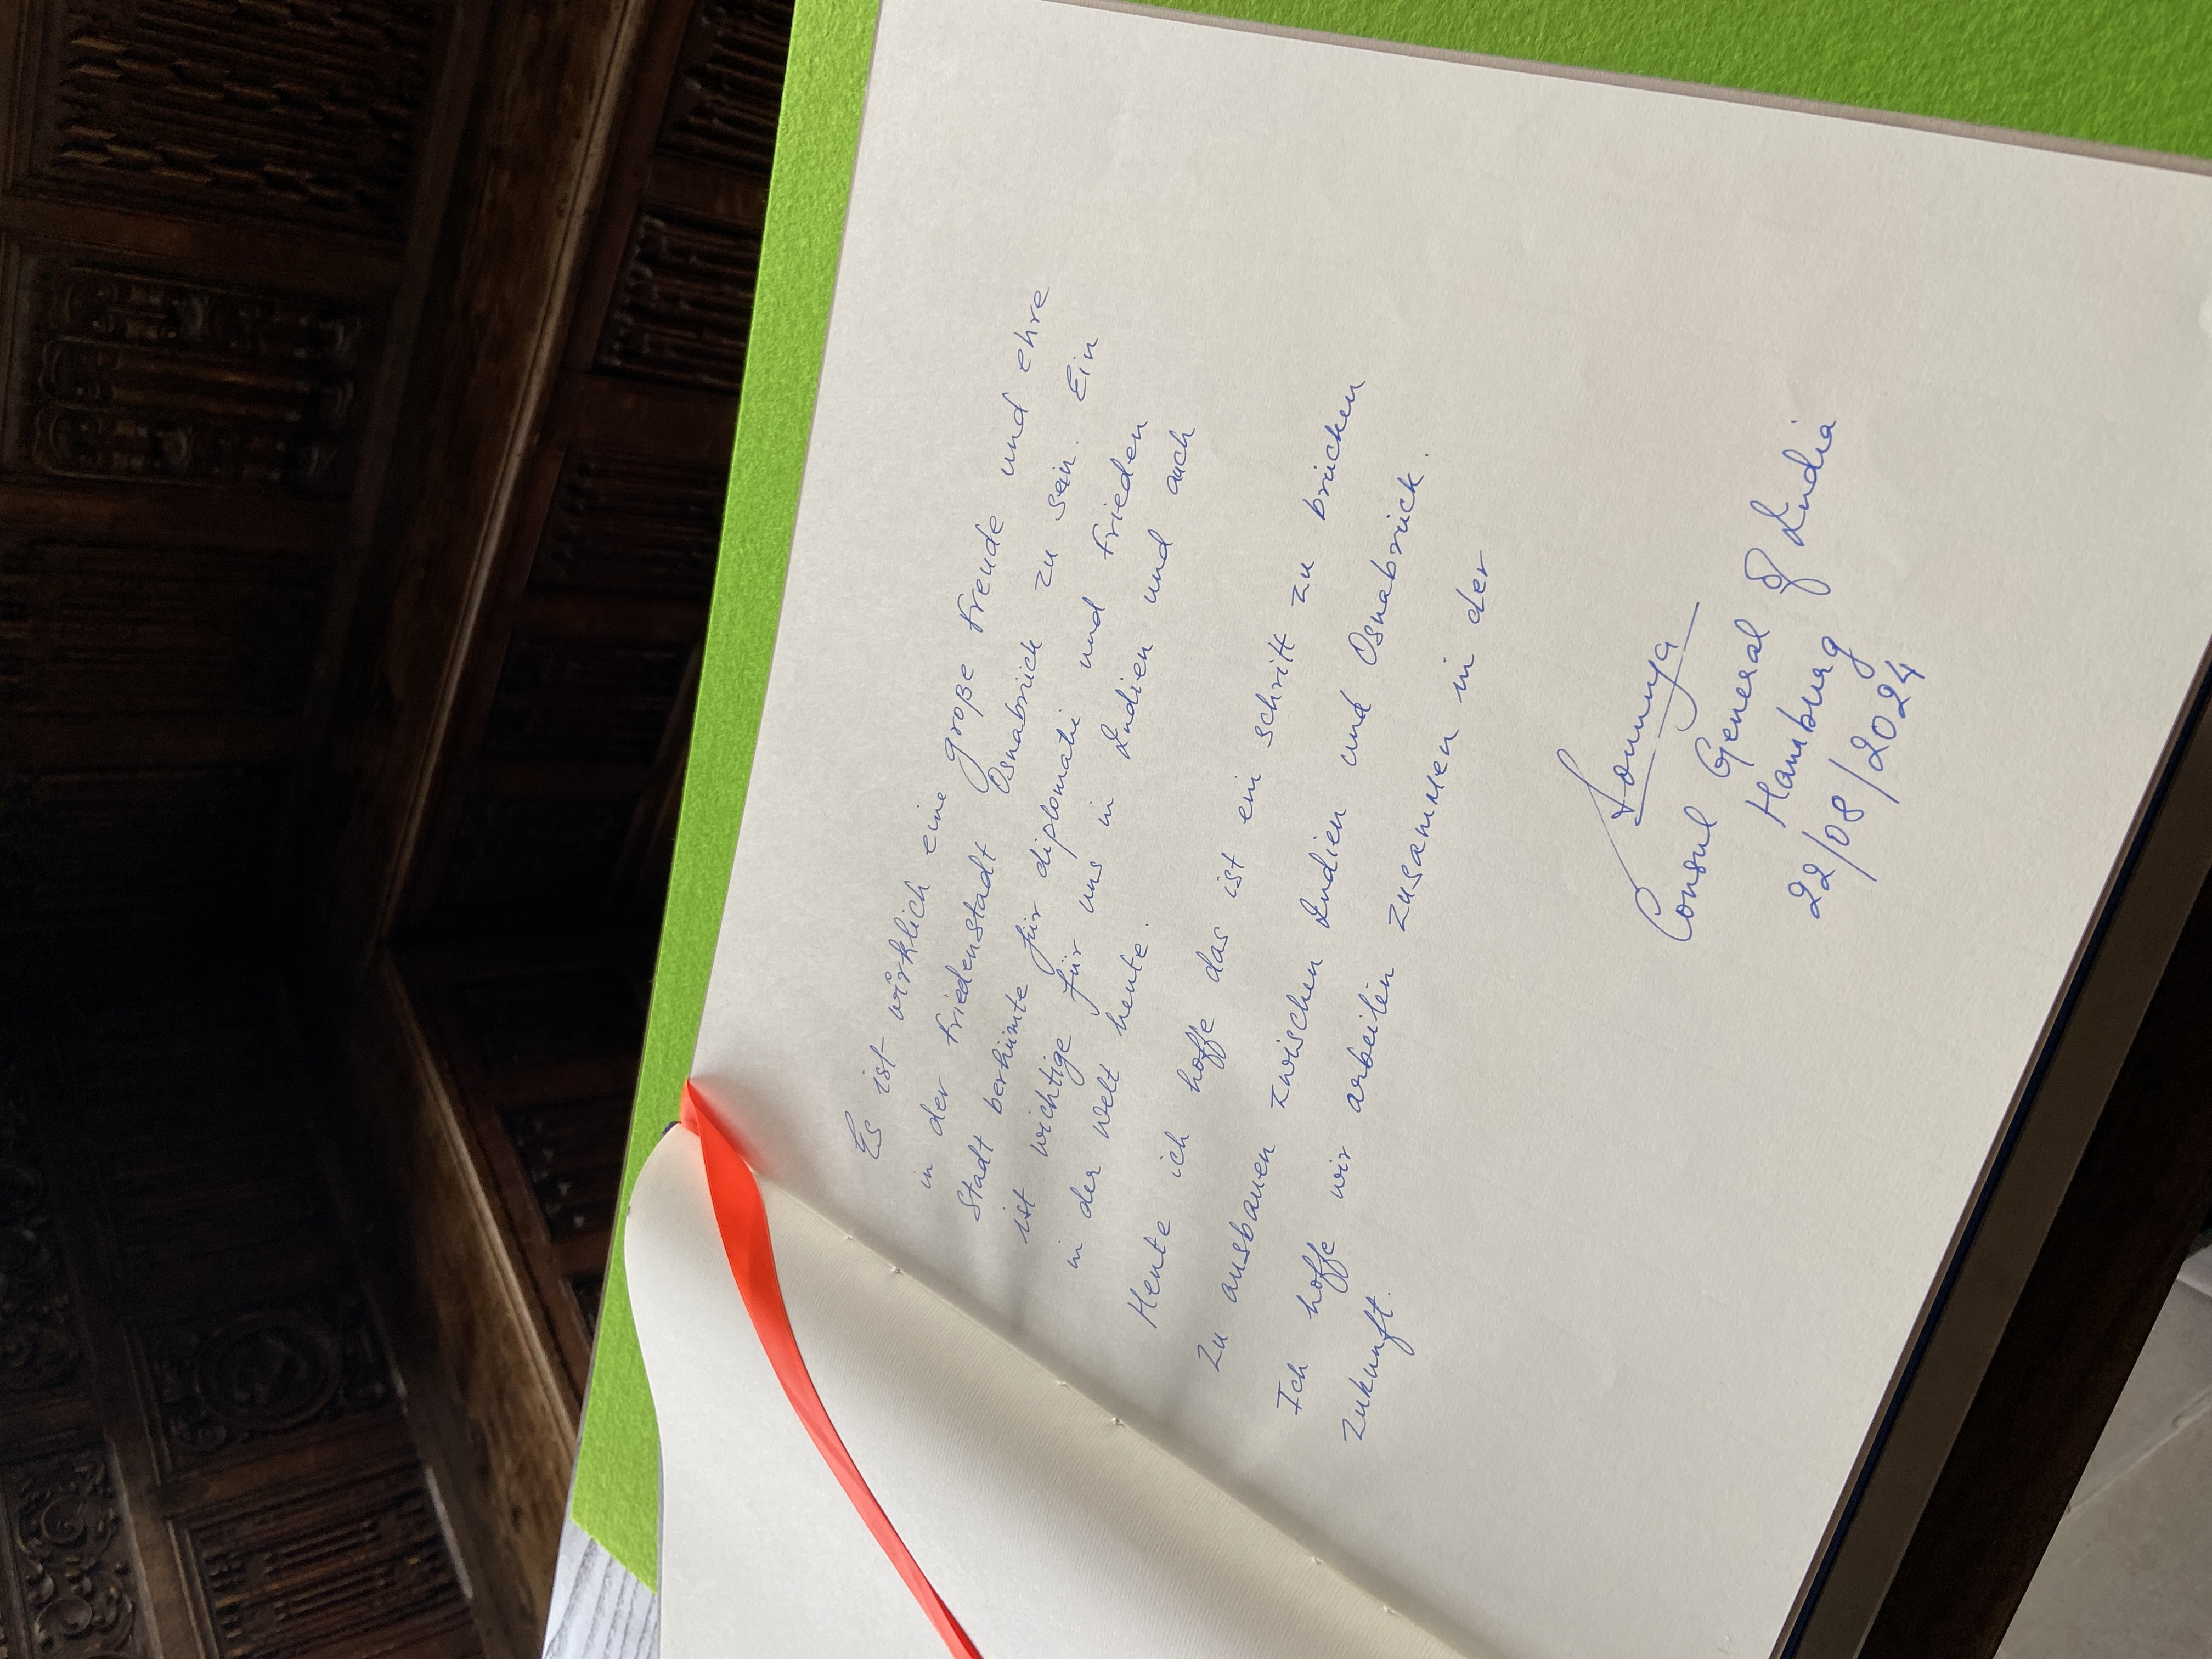 Es ist wirklich eine große Freude und ehre
in der Friedenstadt Osnabrück zu sein. Ein
Stadt berhümte für diplomatie und Frieden
ist wichtige für uns in Indien und auch
in der welt heute.
Heute ich hoffe das ist ein schritt zu brücken
zu ausbauen zwischen Indien und Osnabrück.
Ich hoffe wir arbeiten zusammen in der
zukunft.
Soumya
Consul General of India
Hamburg
22/08/2024